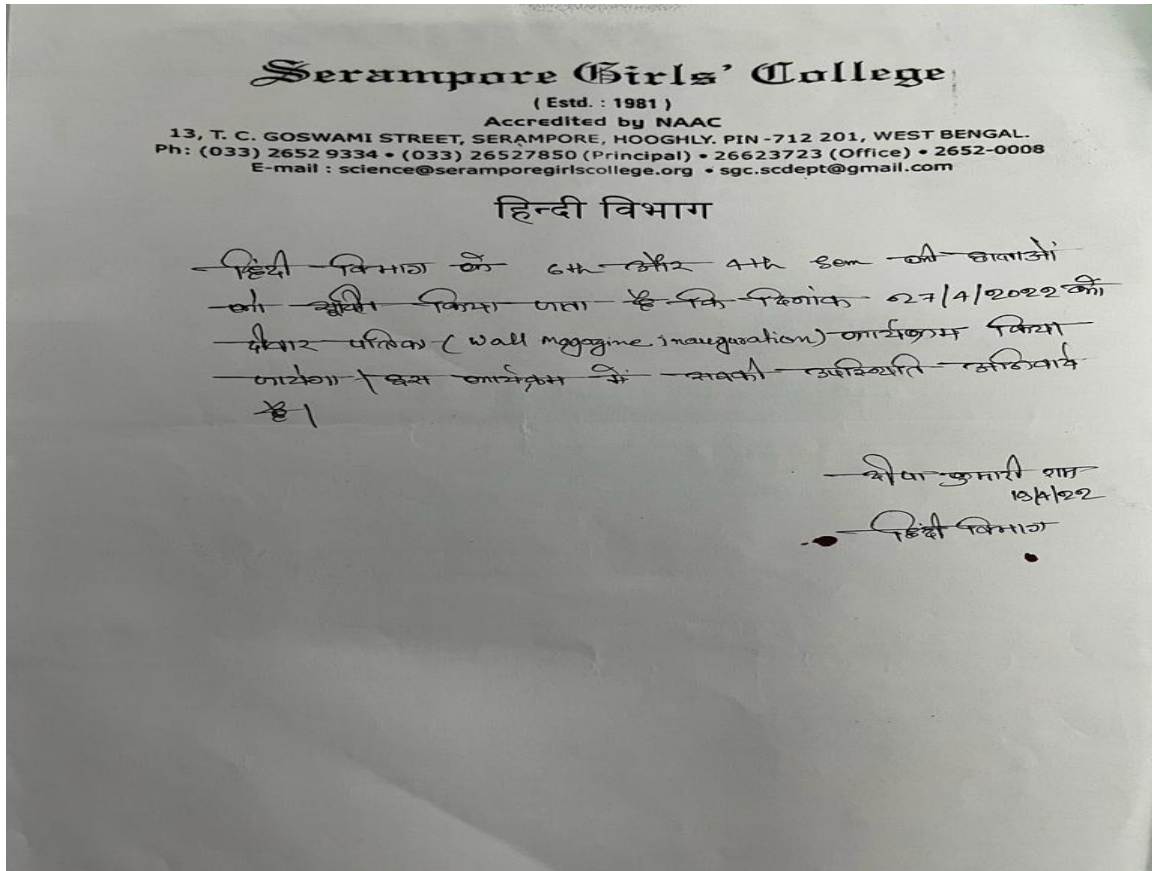 Serampore Girls' College
( Estd. : 1981 )
Accredited by NAAC
13, T. C. GOSWAMI STREET, SERAMPORE, HOOGHLY. PIN -712 201, WEST BENGAL.
Ph: (033) 2652 9334 • (033) 26527850 (Principal) • 26623723 (Office) • 2652-0008
E-mail : science@seramporegirlscollege.org • sgc.scdept@gmail.com
हिन्दी विभाग
हिंदी विभाग के 6th और 4th Sem की छात्राओं
को सूचित किया जाता है कि दिनांक 27/4/2022 को
दीवार पत्रिका (Wall Magazine inauguration) कार्यक्रम किया
जायेगा। इस कार्यक्रम में सबकी उपस्थिति अनिवार्य
है।
कुमारी
19/4/22
हिंदी विभाग